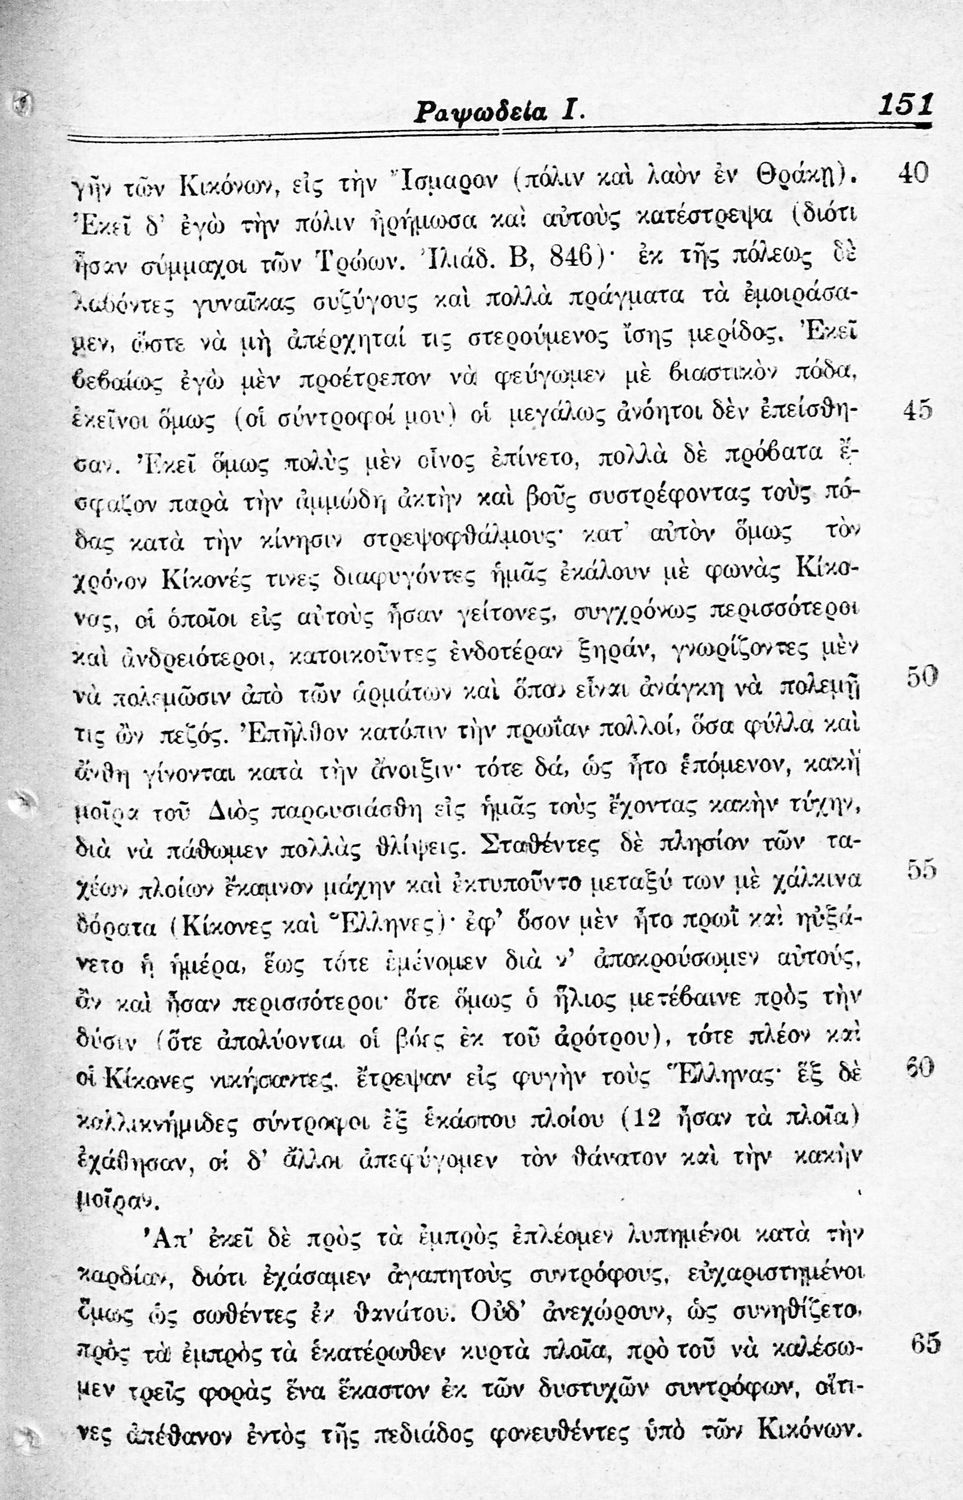 Ραψωδεία Ι. 151
γῆν τῶν Κικόνων, εἰς τὴν Ἴσμαρον (πόλιν καὶ λαὸν ἐν Θράκῃ). 40
Ἐκεῖ δ' ἐγὼ τὴν πόλιν ἠρήμωσα καὶ αὐτοὺς κατέστρεψα (διότι
ἦσαν σύμμαχοι τῶν Τρώων. Ἰλιάδ. Β, 846)· ἐκ τῆς πόλεως δὲ
λαβόντες γυναῖκας συζύγους καὶ πολλὰ πράγματα τὰ ἐμοιράσα-
μεν, ὥστε νὰ μὴ ἀπέρχηταί τις στερούμενος ἴσης μερίδος. Ἐκεῖ
βεβαίως ἐγὼ μὲν προέτρεπον νὰ φεύγωμεν μὲ βιαστικὸν πόδα,
ἐκεῖνοι ὅμως (οἱ σύντροφοί μου) οἱ μεγάλως ἀνόητοι δὲν ἐπείσθη- 45
σαν. Ἐκεῖ ὅμως πολὺς μὲν οἶνος ἐπίνετο, πολλὰ δὲ πρόβατα ἔ-
σφαζον παρὰ τὴν ἀμμώδη ἀκτὴν καὶ βοῦς συστρέφοντας τοὺς πό-
δας κατὰ τὴν κίνησιν στρεψοφθάλμους· κατ' αὐτὸν ὅμως τὸν
χρόνον Κίκονές τινες διαφυγόντες ἡμᾶς ἐκάλουν μὲ φωνὰς Κίκο-
νας, οἱ ὁποῖοι εἰς αὐτοὺς ἦσαν γείτονες, συγχρόνως περισσότεροι
καὶ ἀνδρειότεροι, κατοικοῦντες ἐνδοτέραν ξηράν, γνωρίζοντες μὲν
νὰ πολεμῶσιν ἀπὸ τῶν ἁρμάτων καὶ ὅπου εἶναι ἀνάγκη νὰ πολεμῇ 50
τις ὢν πεζός. Ἐπῆλθον κατόπιν τὴν πρωΐαν πολλοί, ὅσα φύλλα καὶ
ἄνθη γίνονται κατὰ τὴν ἄνοιξιν· τότε δά, ὡς ἦτο ἑπόμενον, κακὴ
μοῖρα τοῦ Διὸς παρουσιάσθη εἰς ἡμᾶς τοὺς ἔχοντας κακὴν τύχην,
διὰ νὰ πάθωμεν πολλὰς θλίψεις. Σταθέντες δὲ πλησίον τῶν τα-
χέων πλοίων ἔκαμνον μάχην καὶ ἐκτυποῦντο μεταξύ των μὲ χάλκινα 55
δόρατα (Κίκονες καὶ Ἕλληνες)· ἐφ' ὅσον μὲν ἦτο πρωῒ καὶ ηὐξά-
νετο ἡ ἡμέρα, ἕως τότε ἐμένομεν διὰ ν' ἀποκρούσωμεν αὐτούς,
ἂν καὶ ἦσαν περισσότεροι· ὅτε ὅμως ὁ ἥλιος μετέβαινε πρὸς τὴν
δύσιν (ὅτε ἀπολύονται οἱ βόες ἐκ τοῦ ἀρότρου), τότε πλέον καὶ
οἱ Κίκονες νικήσαντες, ἔτρεψαν εἰς φυγὴν τοὺς Ἕλληνας· ἓξ δὲ 60
καλλικνήμιδες σύντροφοι ἐξ ἑκάστου πλοίου (12 ἦσαν τὰ πλοῖα)
ἐχάθησαν, οἱ δ' ἄλλοι ἀπεφύγομεν τὸν θάνατον καὶ τὴν κακὴν
μοῖραν.
Ἀπ' ἐκεῖ δὲ πρὸς τὰ ἐμπρὸς ἐπλέομεν λυπημένοι κατὰ τὴν
καρδίαν, διότι ἐχάσαμεν ἀγαπητοὺς συντρόφους, εὐχαριστημένοι
ὅμως ὡς σωθέντες ἐκ θανάτου. Οὐδ' ἀνεχώρουν, ὡς συνηθίζετο,
πρὸς τὰ ἐμπρὸς τὰ ἑκατέρωθεν κυρτὰ πλοῖα, πρὸ τοῦ νὰ καλέσω- 65
μεν τρεῖς φορὰς ἕνα ἕκαστον ἐκ τῶν δυστυχῶν συντρόφων, οἵτι-
νες ἀπέθανον ἐντὸς τῆς πεδιάδος φονευθέντες ὑπὸ τῶν Κικόνων.